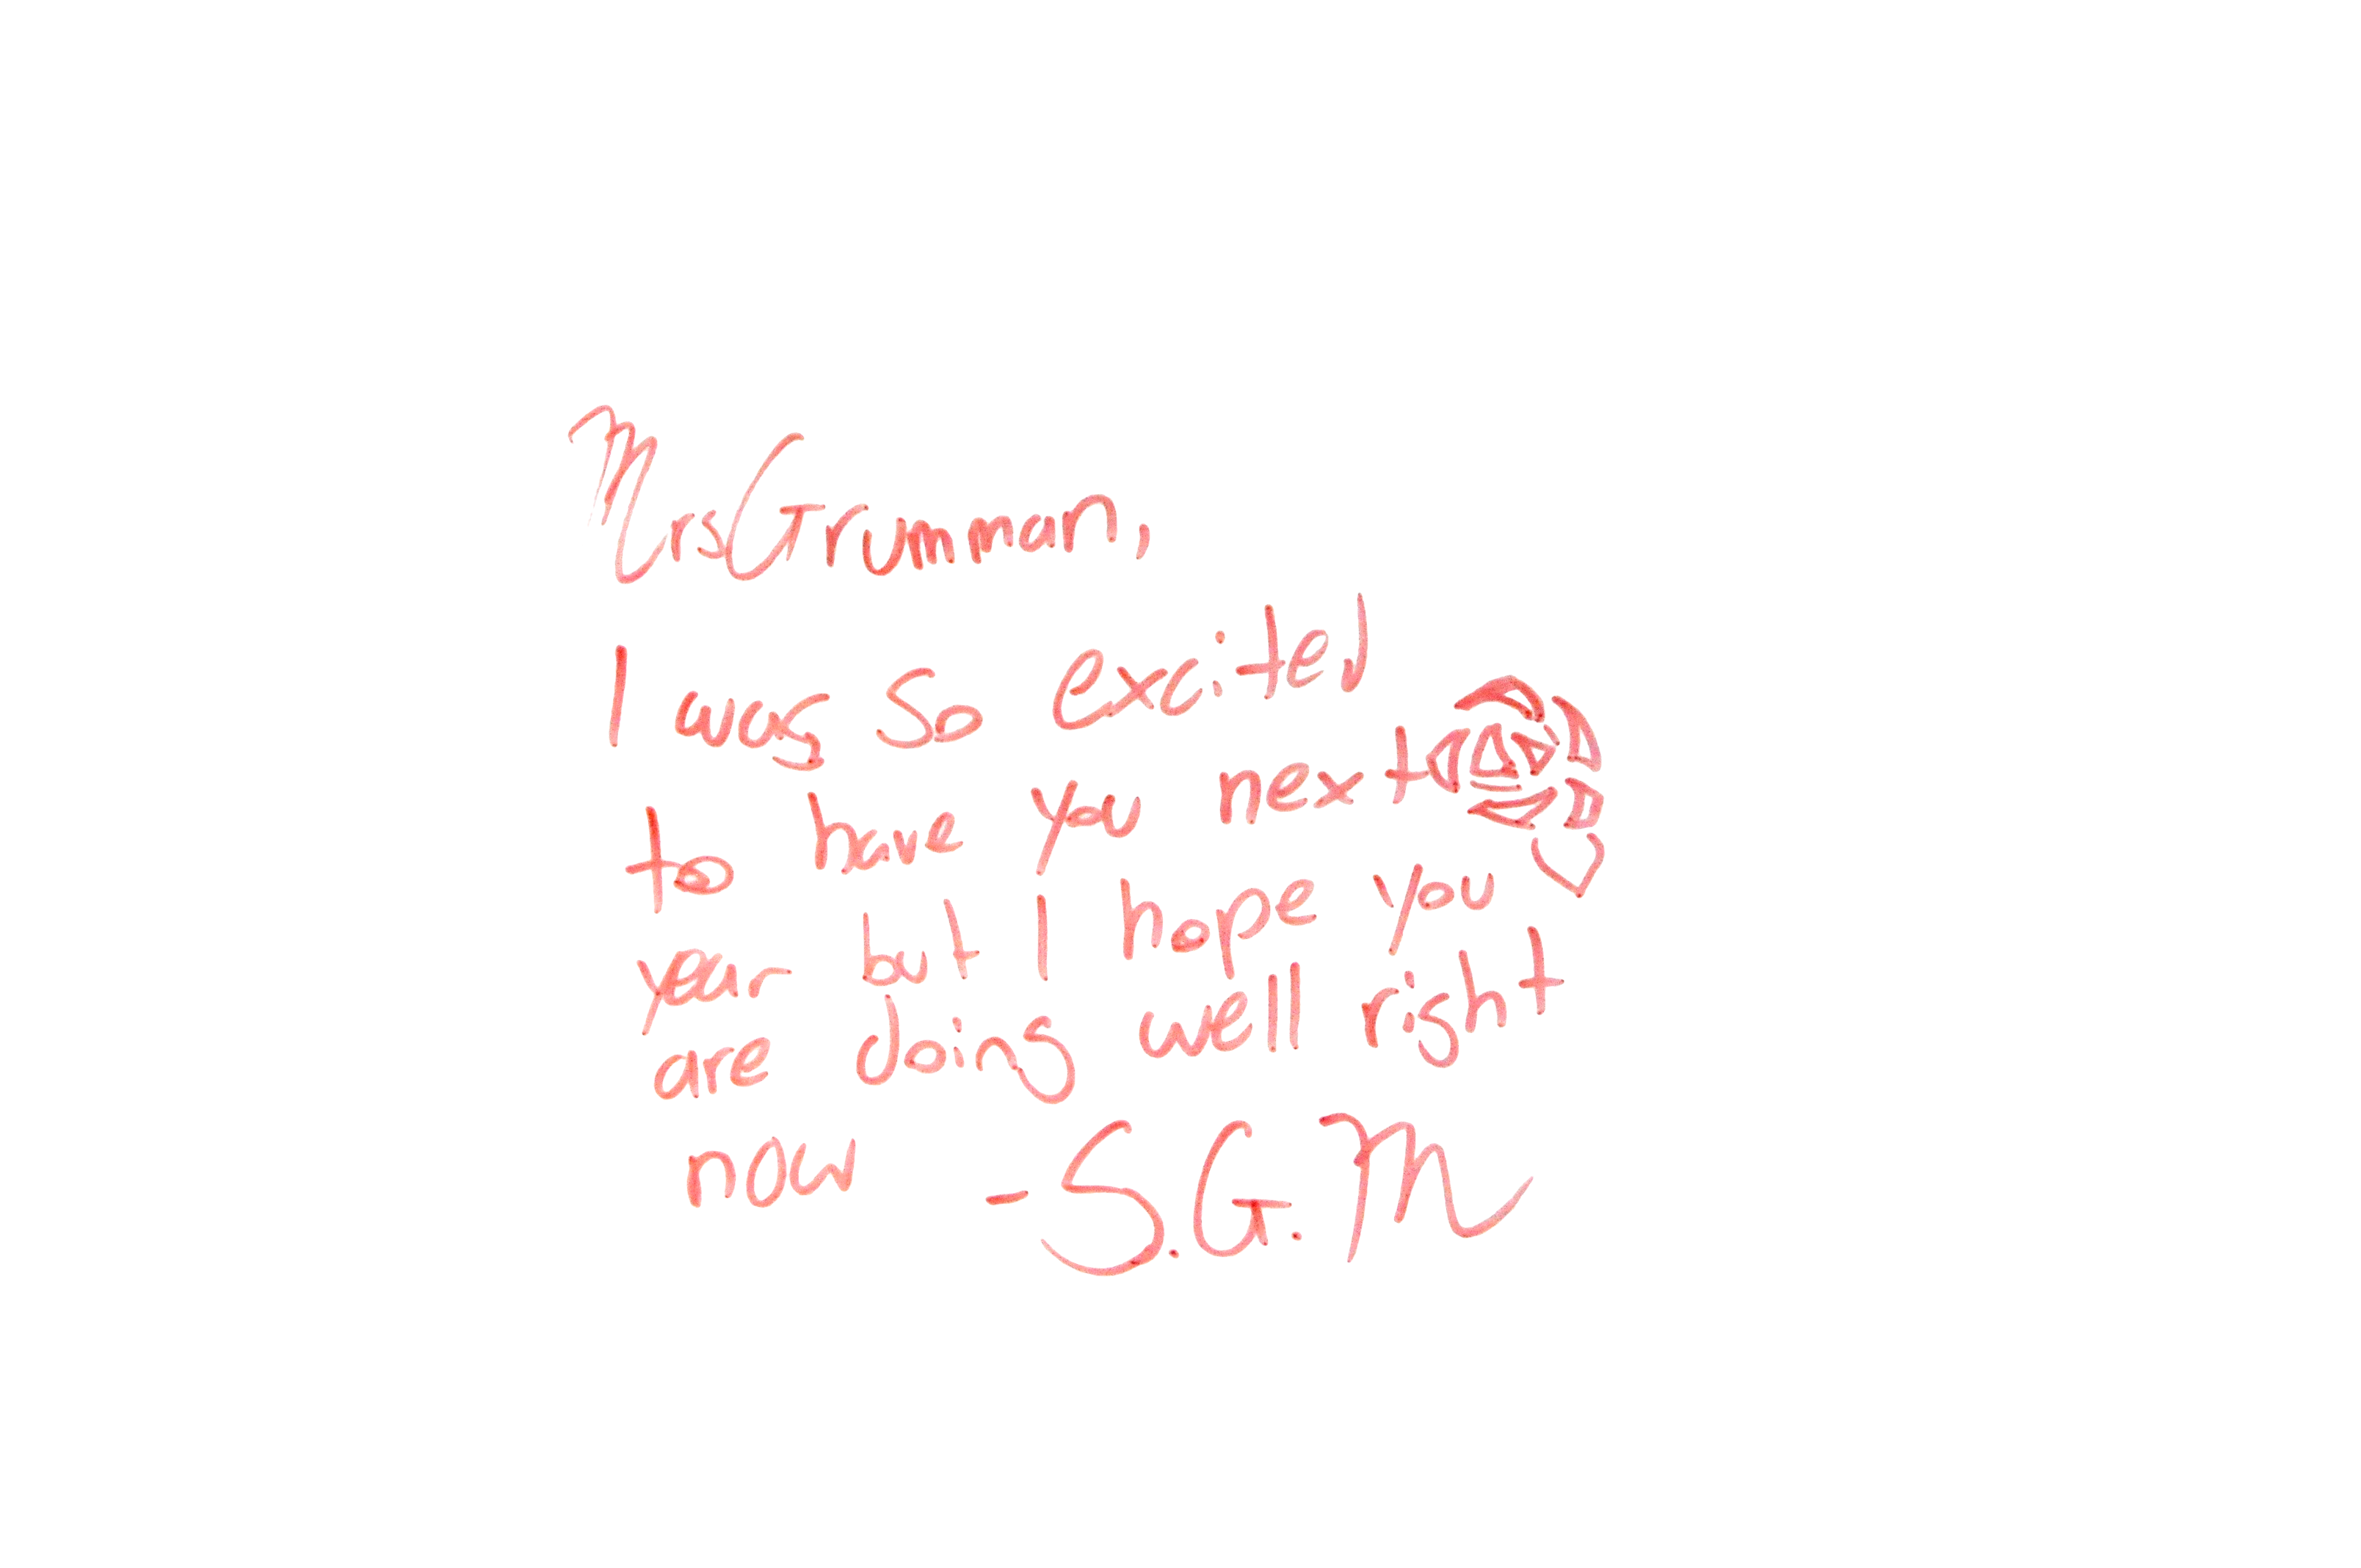 Mrs Grumman,
I was so excited
to have you next
year but I hope you
are doing well right
now -S.G.M